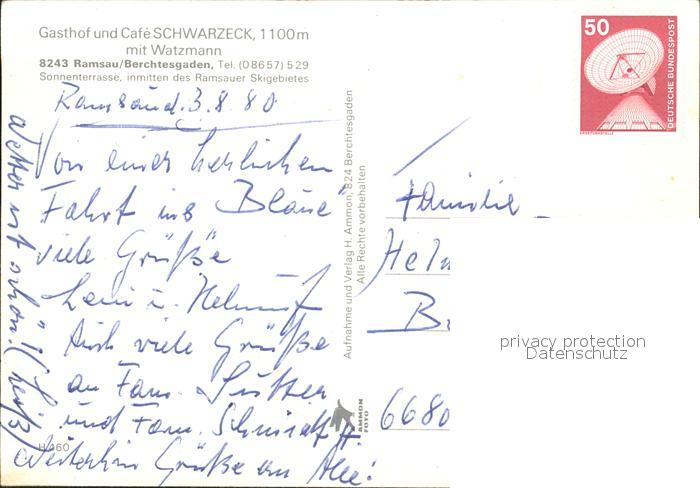 Gasthof und Café SCHWARZECK, 1100m
mit Watzmann
8243 Ramsau/Berchtesgaden, Tel. (08657) 529
Sonnenterrasse, inmitten des Ramsauer Skigebietes
Ramsau d. 3.8.80
Von einer herrlichen
Fahrt ins Blaue"
viele Grüße
Leni u. Helmut
Auch viele Grüße
an Fam. Sutter
und Fam. Schmidt
Weiterhin Grüße an Alle!
Wetter ist schön! (heiß)
H/460
Aufnahme und Verlag H. Ammon, 824 Berchtesgaden
Alle Rechte vorbehalten
AMMON
FOTO
50
DEUTSCHE BUNDESPOST
ERDEFUNKSTELLE
Familie
6680
privacy protection
Datenschutz